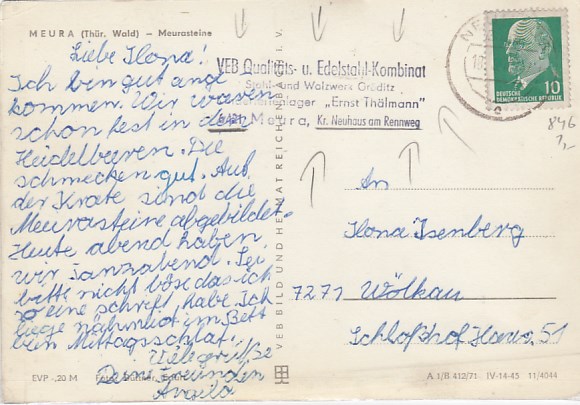 MEURA (Thür. Wald) — Meurasteine
Liebe Ilona!
Ich bin gut ange
kommen. Wir waren
schon fest in den
Heidelbeeren. Die
schmecken gut. Auf
der Krate sind die
Meurasteine abgebildet.
Heute abend haben
wir Tanzabend. Sei
bitte nicht böse das ich
so eine schrift habe. Ich
liege nähmlich im Bett
beim Mittagsschlaf.
Viele grüße
Deine Freundin
EVP -,20 M
VEB BILD UND HEIMAT REICHENBACH i. V.
VEB Qualitäts- u. Edelstahl-Kombinat
Stahl- und Walzwerk Gröditz
"Ernst Thälmann"
6421 Meura, Kr. Neuhaus am Rennweg
10
DEUTSCHE
DEMOKRATISCHE REPUBLIK
846
An
Ilona Isenberg
7271 Wölkau
Schloßhof Haus 51
A 1/B 412/71 IV-14-45 11/4044